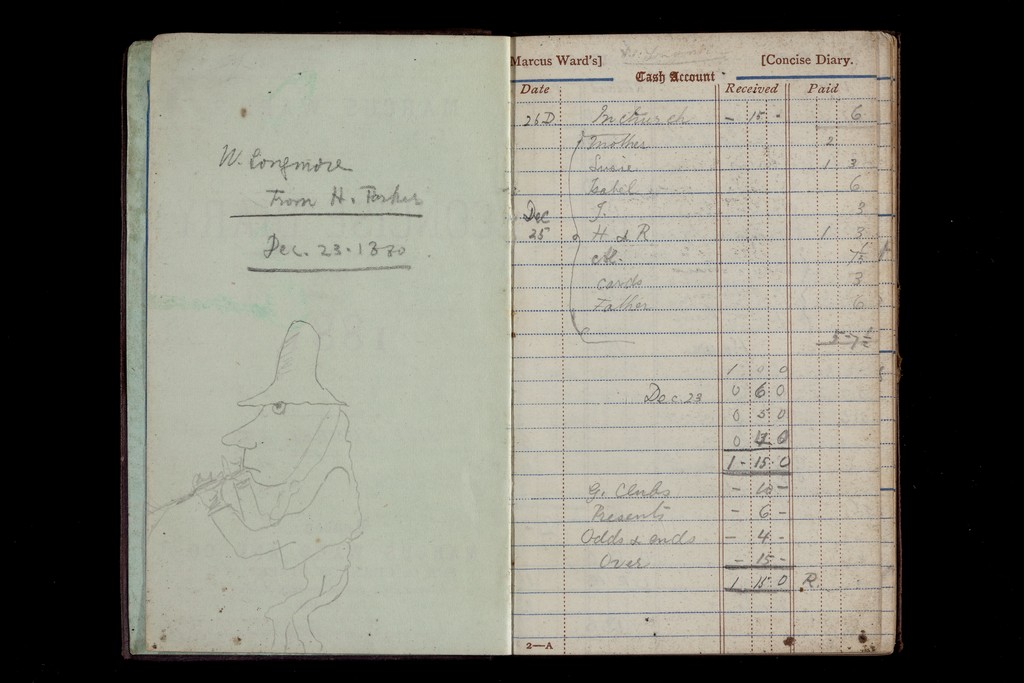 W. Longmore
From H. Parker
Dec. 23. 1880
Marcus Ward's] [Concise Diary.
Cash Account
Date Received Paid
26 D In church - 15 - 6
Mother 2
Susie 1 3
Isabel 6
J. 3
Dec
25 H & R 1 3
Al.
cards 3
Father 6
5 - 7 1/2
1 0 0
Dec. 23 0 6 0
0 5 0
0 4 0
1 - 15 0
G. Clubs - 10 -
Presents - 6 -
Odds & ends - 4 -
Over - 15 -
1 15 0 R
2—A